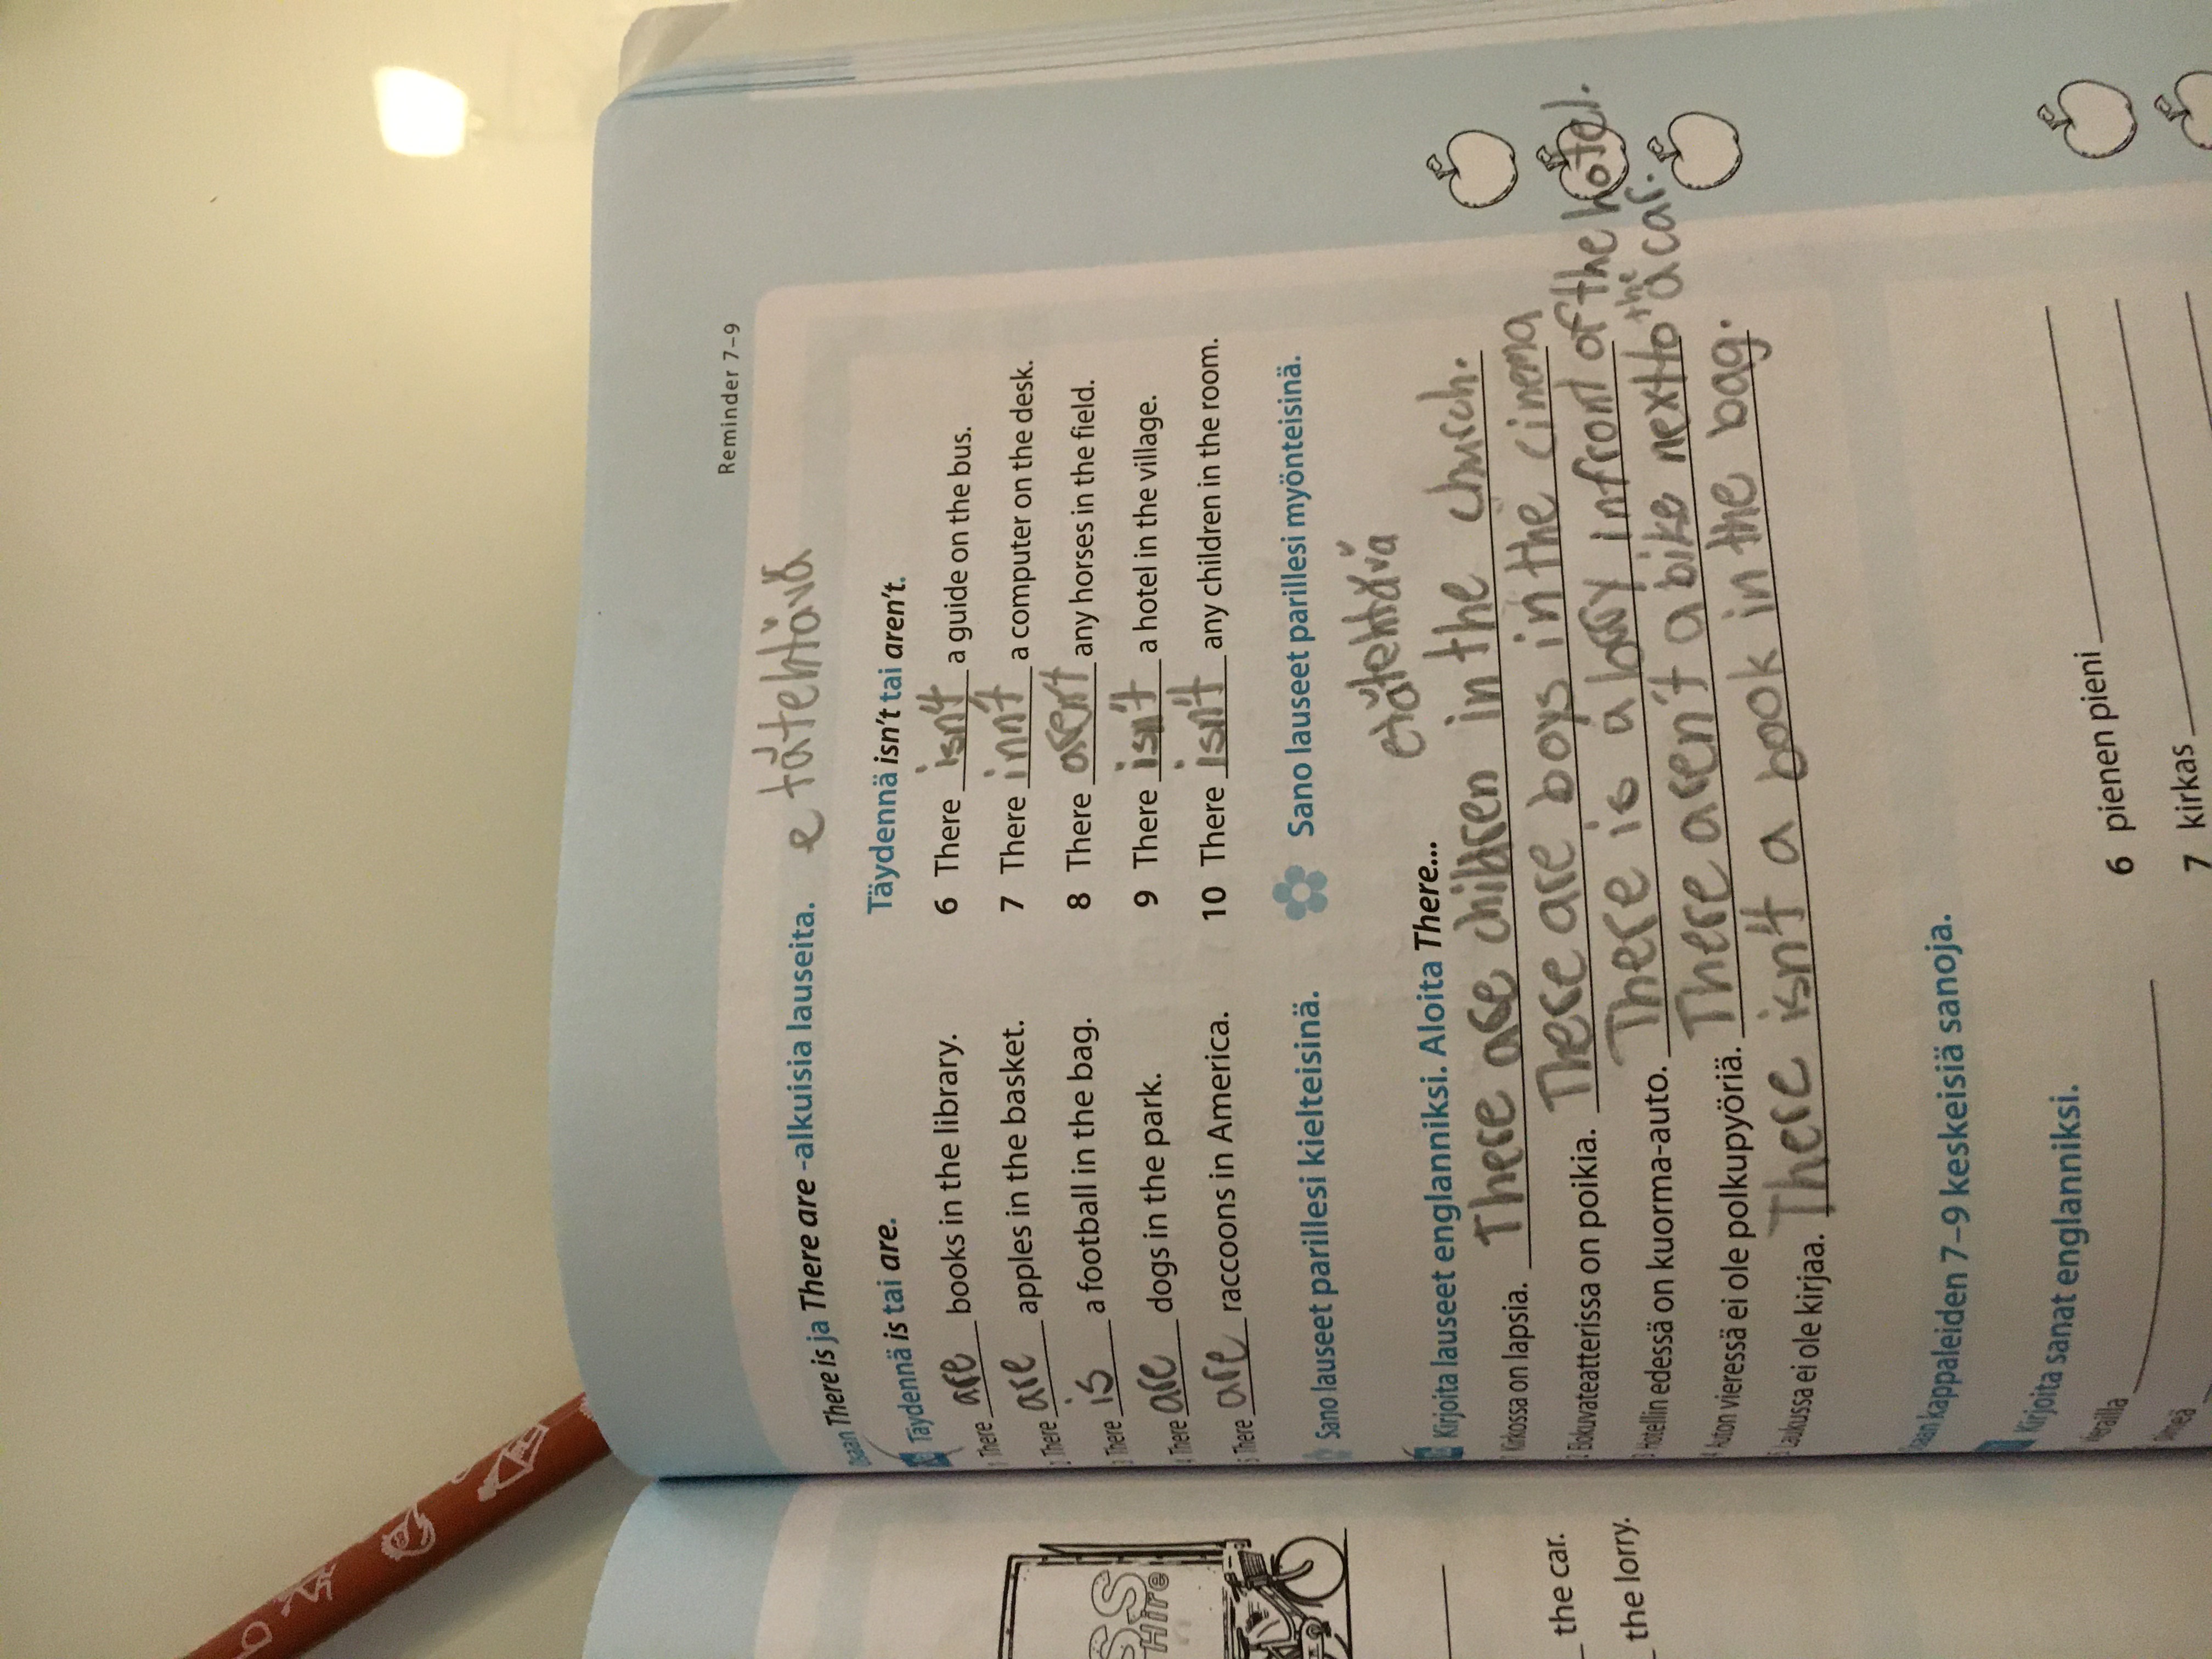 Reminder 7–9
Osaan There is ja There are -alkuisia lauseita. etätehtävä
Täydennä is tai are.
1 There are books in the library.
2 There are apples in the basket.
3 There is a football in the bag.
4 There are dogs in the park.
5 There are raccoons in America.
Sano lauseet parillesi kielteisinä.
Täydennä isn't tai aren't.
6 There isn't a guide on the bus.
7 There inn't a computer on the desk.
8 There arent any horses in the field.
9 There isn't a hotel in the village.
10 There isn't any children in the room.
Sano lauseet parillesi myönteisinä.
etätehtävä
Kirjoita lauseet englanniksi. Aloita There...
1 Kirkossa on lapsia. There are children in the church.
2 Elokuvateatterissa on poikia. There are boys in the cinema
3 Hotellin edessä on kuorma-auto. There is a infront of the hotel.
4 Auton vieressä ei ole polkupyöriä. There aren't a bike next to the a car.
5 Laukussa ei ole kirjaa. There isn't a book in the bag.
Osaan kappaleiden 7–9 keskeisiä sanoja.
Kirjoita sanat englanniksi.
6 pienen pieni
7 kirkas
SS
Hire
the car.
the lorry.